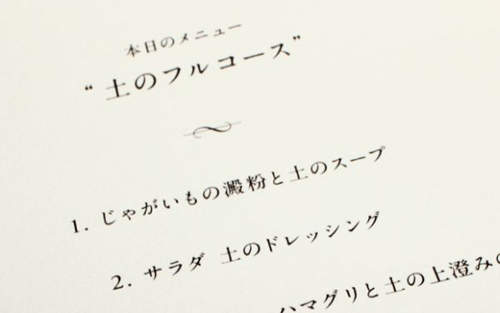 本日のメニュー
“土のフルコース”
1. じゃがいもの澱粉と土のスープ
2. サラダ 土のドレッシング
ハマグリと土の上澄みの